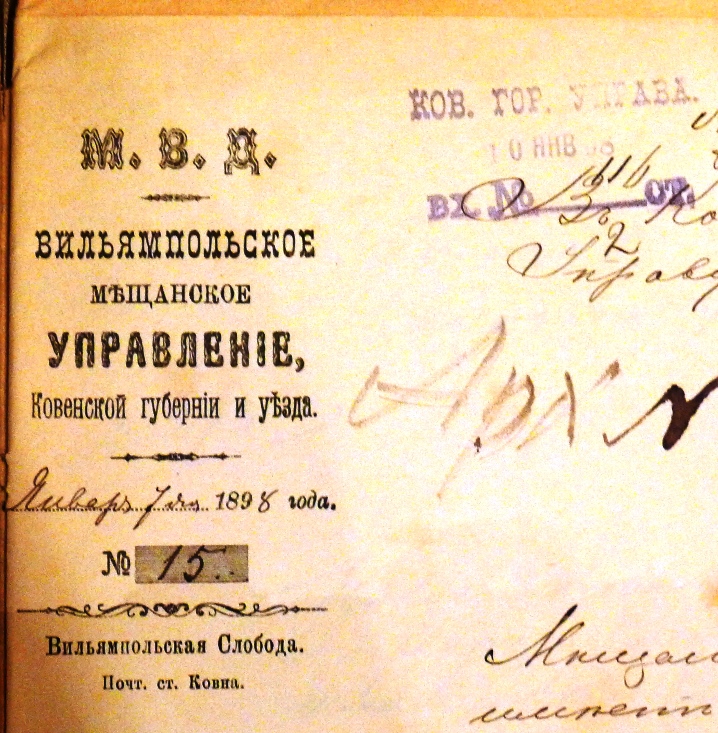 М. В. Д.
ВИЛЬЯМПОЛЬСКОЕ
МѢЩАНСКОЕ
УПРАВЛЕНІЕ,
Ковенской губерніи и уѣзда.
Январь 7 дня 1898 года.
№ 15.
Вильямпольская Слобода.
Почт. ст. Ковна.
КОВ. ГОР. УПРАВА.
10 ЯНВ 98
ВХ. № СТ.
Въ
Арх №